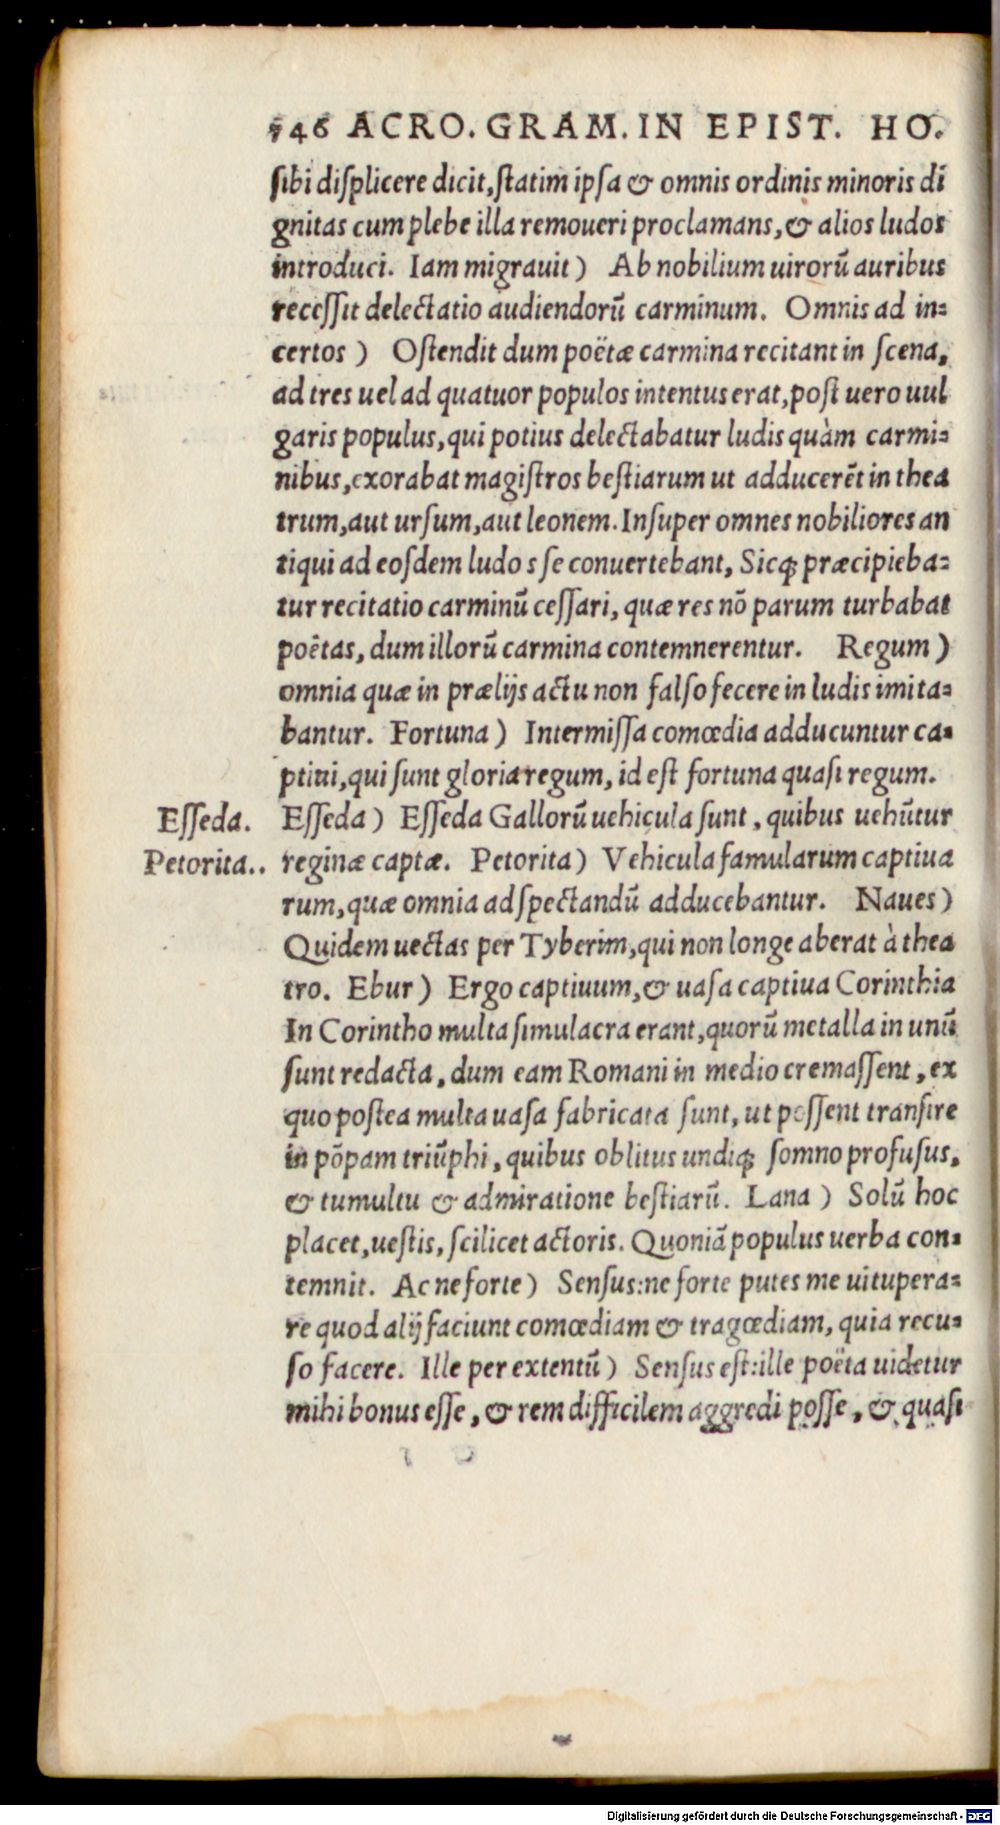 746 ACRO. GRAM. IN EPIST. HO.
sibi displicere dicit, statim ipsa & omnis ordinis minoris di
gnitas cum plebe illa remoueri proclamans, & alios ludos
introduci. Iam migrauit) Ab nobilium uirorū auribus
recessit delectatio audiendorū carminum. Omnis ad in-
certos) Ostendit dum poëtæ carmina recitant in scena,
ad tres uel ad quatuor populos intentus erat, post uero uul
garis populus, qui potius delectabatur ludis quàm carmi-
nibus, exorabat magistros bestiarum ut adducerēt in thea
trum, aut ursum, aut leonem. Insuper omnes nobiliores an
tiqui ad eosdem ludo s se conuertebant, Sicq; præcipieba-
tur recitatio carminū cessari, quæ res nō parum turbabat
poëtas, dum illorū carmina contemnerentur. Regum)
omnia quæ in prælijs actu non falso fecere in ludis imita-
bantur. Fortuna) Intermissa comœdia adducuntur ca-
ptiui, qui sunt gloria regum, id est fortuna quasi regum.
Esseda. Esseda) Esseda Gallorū uehicula sunt, quibus uehūtur
Petorita.. reginæ captæ. Petorita) Vehicula famularum captiua
rum, quæ omnia ad spectandū adducebantur. Naues)
Quidem uectas per Tyberim, qui non longe aberat à thea
tro. Ebur) Ergo captiuum, & uasa captiua Corinthia
In Corintho multa simulacra erant, quorū metalla in unū
sunt redacta, dum eam Romani in medio cremassent, ex
quo postea multa uasa fabricata sunt, ut possent transire
in pōpam triūphi, quibus oblitus undiq; somno profusus,
& tumultu & admiratione bestiarū. Lana) Solū hoc
placet, uestis, scilicet actoris. Quoniā populus uerba con-
temnit. Ac ne forte) Sensus: ne forte putes me uitupera-
re quod alij faciunt comœdiam & tragœdiam, quia recu-
so facere. Ille per extentū) Sensus est: ille poëta uidetur
mihi bonus esse, & rem difficilem aggredi posse, & quasi
Digitalisierung gefördert durch die Deutsche Forschungsgemeinschaft - DFG